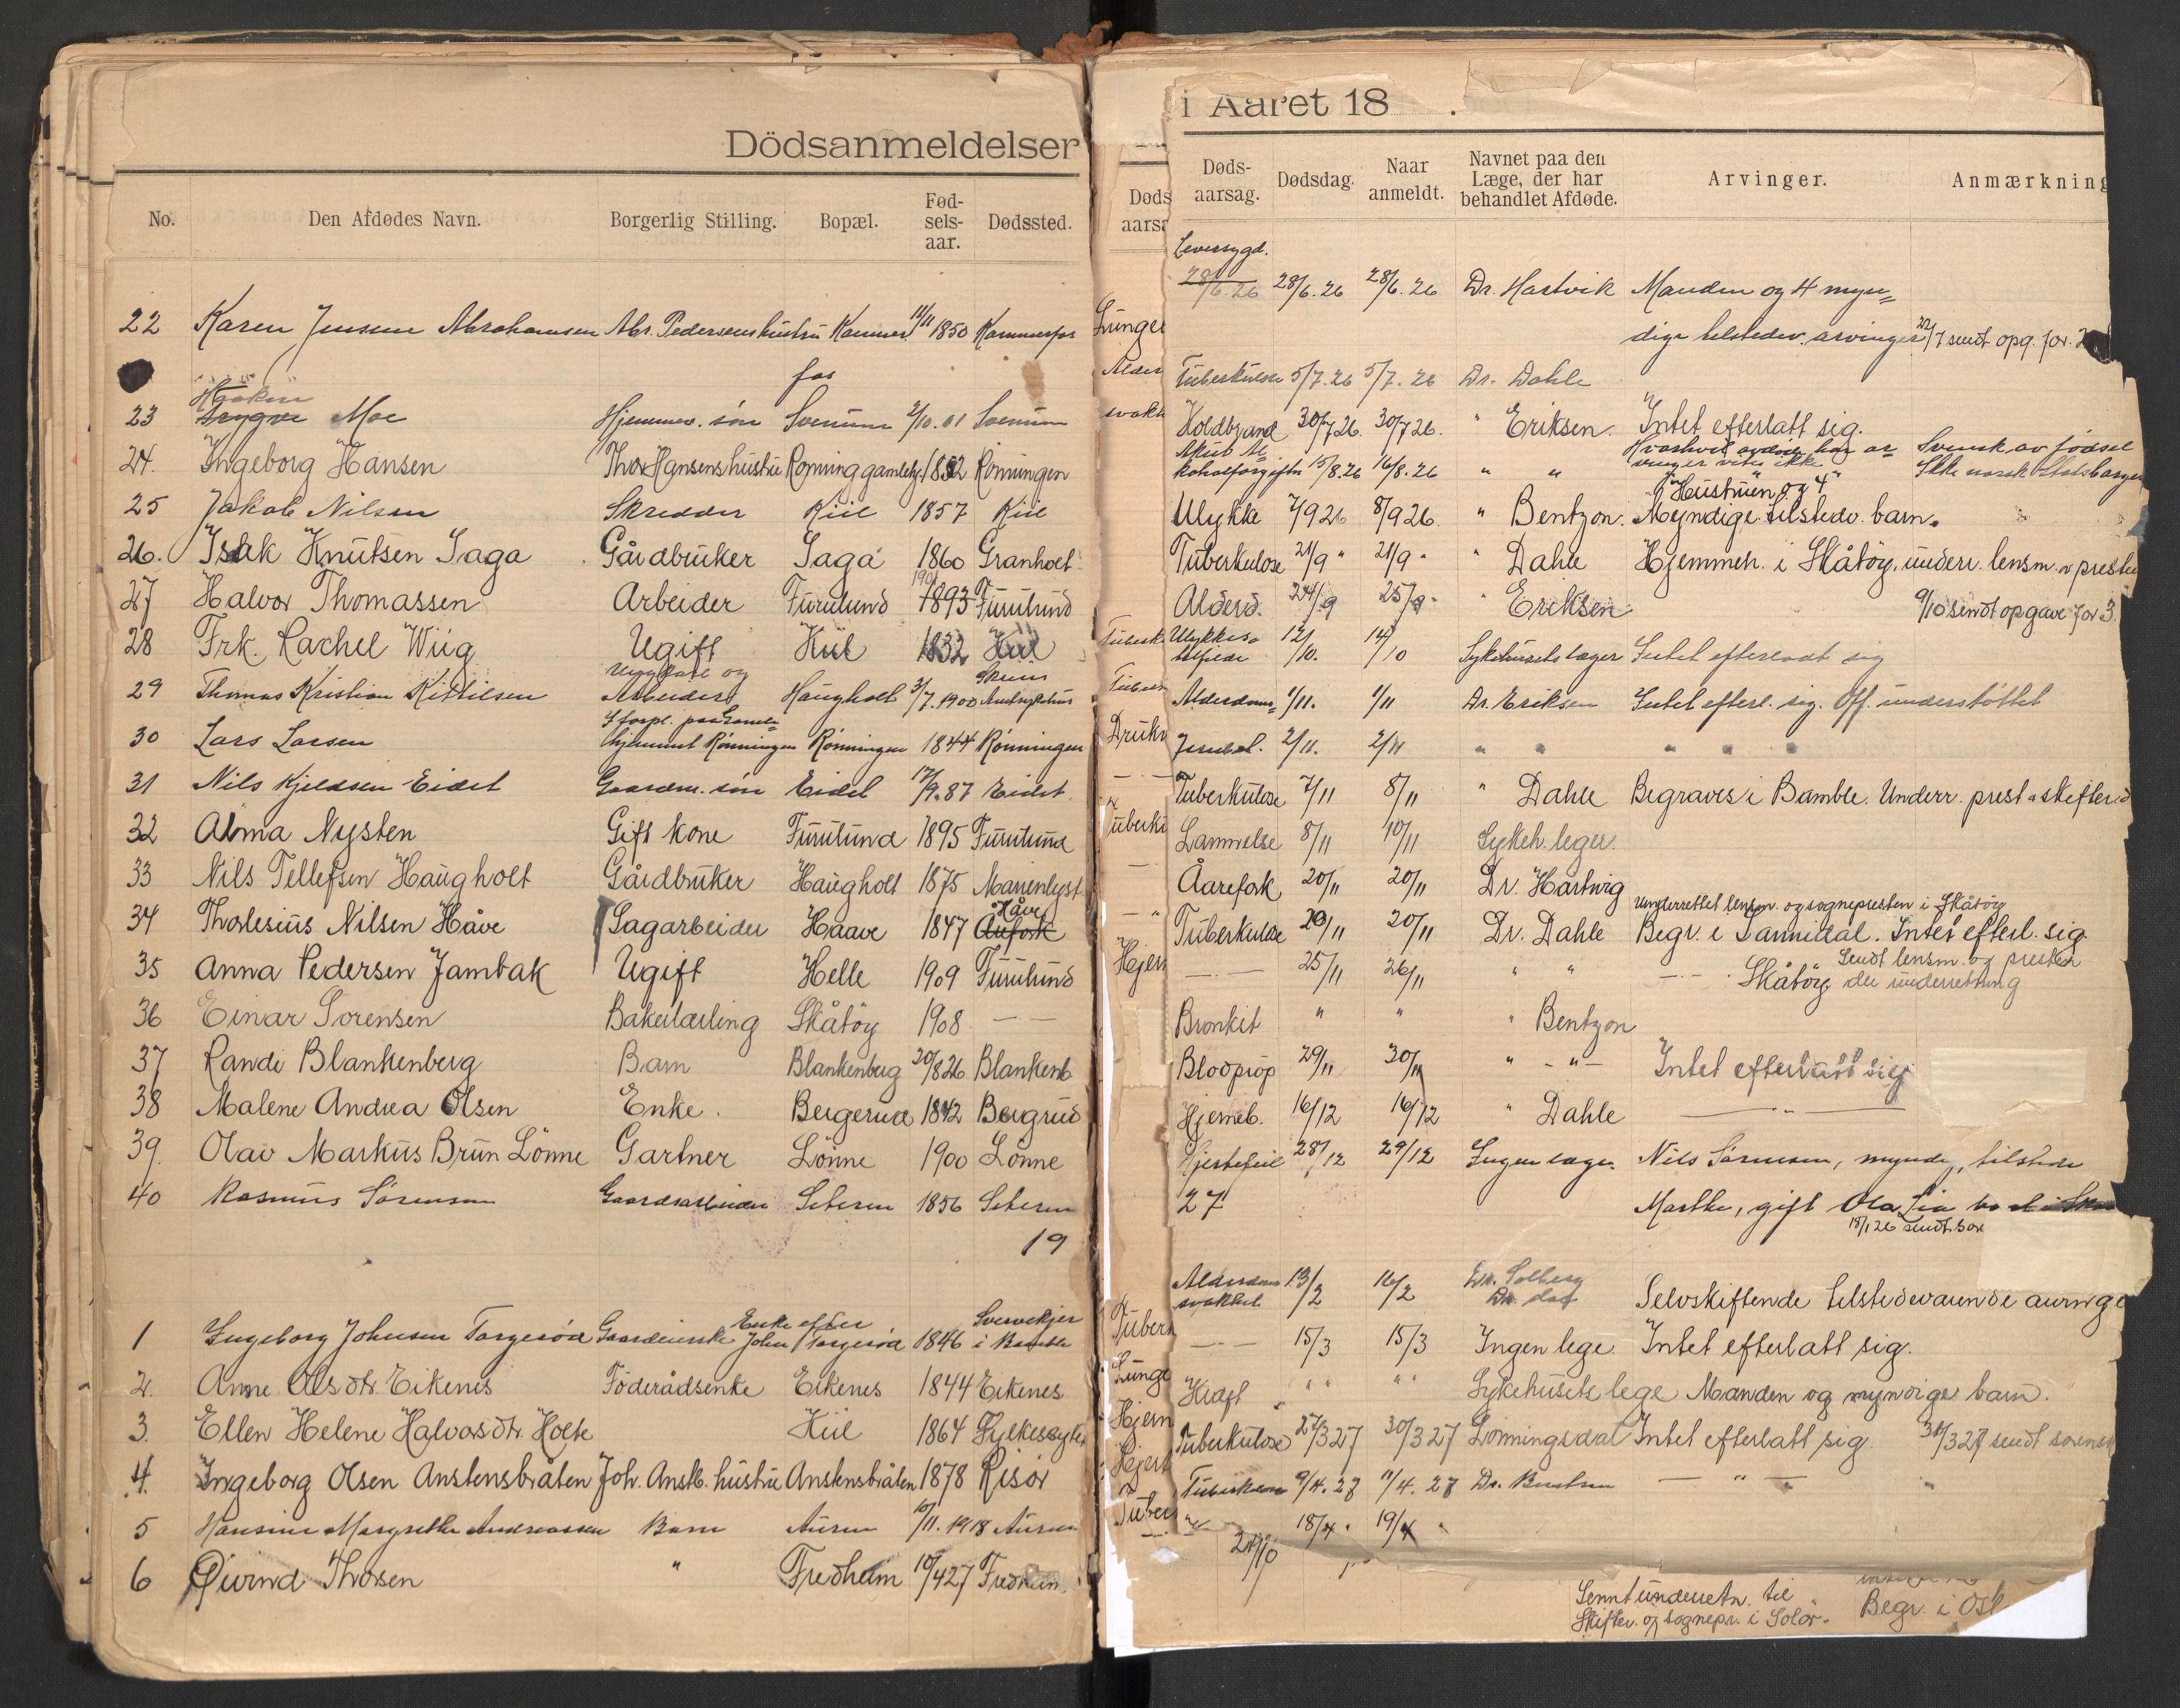 Dödsanmeldelser
No. Den Afdødes Navn. Borgerlig Stilling. Bopæl. Fød-sels-aar. Dødssted.
22 Karen Jensen Abrahamsen Abr. Pedersens hustru Kammer 11/11 1850 Kammerfos
fos
Håkon
23 Trygve Moe Hjemmev. søn Soenum 2/10.01 Soenum
24. Ingeborg Hansen Thor Hansens hustru Rønning gamleh. 1852 Rønningen
25 Jakob Nilsen Skredder Kiil 1857 Kiil
26. Isak Knutsen Saga Gårdbruker Saga 1860 Granholt
1901
27 Halvor Thomassen Arbeider Furulund 1893 Furulund
28 Frk. Rachel Wiig Ugift Kiil 1832 Kiil
Ungkarl og Skien
29 Thomas Kristian Kittilsen Arbeider Haugholt 3/7.1900 Amtssykehus
Forpl. paa Gamle
30 Lars Larsen hjemmet Rønningen Rønningen 1844 Rønningen
31 Nils Kjeldsen Eidet Gaardm. søn Eidet 17/9.87 Eidet
32 Alma Nysten Gift kone Furulund 1895 Furulund
33 Nils Tellefsen Haugholt Gårdbruker Haugholt 1875 Marienlyst
Håve
34 Thorlesius Nilsen Håve Sagarbeider Haave 1847 Aafosk
35 Anna Pedersen Jambak Ugift Helle 1909 Furulund
36 Einar Sorensen Bakerlærling Skåtöy 1908 — —
37 Randi Blankenberg Barn Blankenberg 20/8 26 Blankenb
38 Malene Andrea Olsen Enke. Bergerud 1842 Bergrud
39. Olav Markus Brun Lönne Gartner Lönne 1900 Lönne
40 Rasmus Sörensen Gaardsarbeider Seteren 1856 Seteren
19
Enke efter
1 Ingeborg Johnsen Torgersöd Gaardeierske John Torgersöd 1846 i Bamble
2. Anne Olsdtr. Eikenes Föderådsenke Eikenes 1844 Eikenes
3. Ellen Helene Halvorsdtr. Holte Kiil 1864 Fylkessyke
4. Ingeborg Olsen Anstensbråten Joh. Anstb. hustru Anstensbråten 1878 Risör
5 Hansine Margrethe Andreassen Barn Auren 10/11.1918 Auren
6 Øivind Thorsen " Fredheim 10/4 27 Fredheim.
Døds
aarsa
Lunge
Alder
svakh
Tuberk
Drukn
Tuberku
Hjern
Tubern
Lunge
Hjern
Hjert
Tuber
i Aaret 18 .
Døds-aarsag. Dødsdag. Naar anmeldt. Navnet paa den Læge, der har behandlet Afdøde. Arvinger. Anmærkning
Leversygd.
28/6.26 28/6.26 28/6.26 Dr. Hartvik Manden og 4 myn=
dige tilstedev. arvinger 22/7 sendt opg. for
Tuberkulose 5/7.26 5/7.26 Dr. Dahle
Koldbrand 30/7 26. 30/7 26. " Eriksen. Intet efterlatt sig.
Akut Al Svensk av fødsel
koholforgiftn 15/8.26 16/8.26 " " vites ikke Ikke norsk statsborger
Hustruen og 4
Ulykke 7/9 26 8/9 26. " Bentzon. Myndige tilstedv. barn.
Tuberkulose 21/9 " 21/9 " " Dahle Hjemmeh. i Skåtöy. underr. lensm. o prest
Alderd. 24/9 25/9 " " Eriksen 9/10 sendt opgave for 3.
Ulykkes= 12/10. 14/10 Sykehusets læger Intet efterladt sig
tilfælde
Alderdoms= 1/11. 1/11 Dr. Eriksen Intet efterl. sig. Off. understøttet
2/11. 2/11 " " " " " "
Tuberkulose 7/11 8/11 " Dahle Begraves i Bamble. Underr. prest o skifter
Lammelse 8/11 10/11 Sykeh. leger.
Åarefork 20/11 20/11 Dr. Hartvig
Underrettet lensm. og sognepresten i Skåtöy
Tuberkulose 20/11 20/11 Dr. Dahle Begr. i Sannidal. Intet efterl. sig
Sendt lensm. og presten
— " — 25/11 26/11 " " — " — Skåtöy die underretning
Bronkit " " " Bentzon
Blodprop 29/11 30/11 " - " - Intet efterlatt sig
Hjerneb. 16/12 16/12 " Dahle — " —
Hjertefeil 28/12 29/12 Ingen læge. Nils Sørensen, myndig, tilstede
27 Marthe, gift Ola Lia
18/1 26 sendt sor
Alderdoms 13/2 16/2 Dr. Solberg
svakhet Selvskiftende tilstedeværende arvinge
— " — 15/3 15/3 Ingen lege. Intet efterlatt sig.
Kræft " " " " Sykehusets lege Manden og myndige barn.
Tuberkulose 27/3 27 30/3 27 Lönningsdal Intet efterlatt sig. 31/3 27 sendt sorensk
Tuberkulose 9/4.27 11/4.27 Dr. — " — "
" 18/4 " 19/4 "
21/10
Sennt underretn. til
Skifter. og sognepr. i Solör.
Begr. i Osl